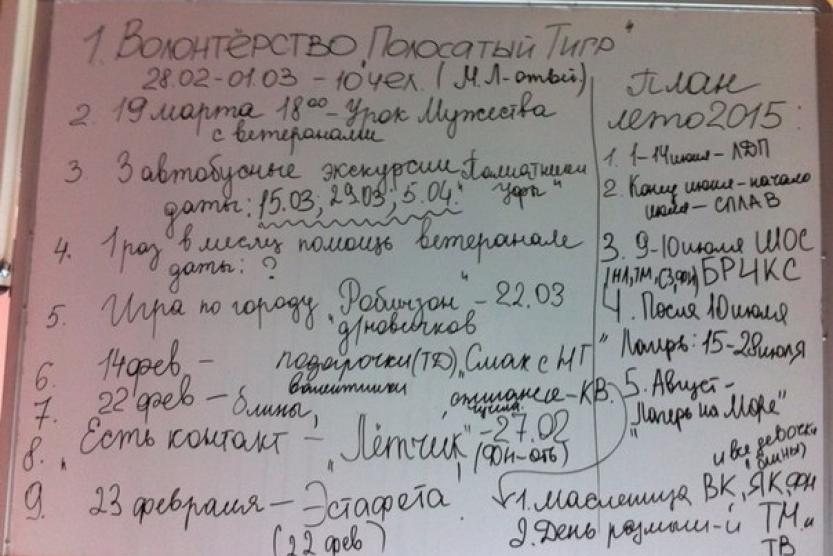 1. Волонтёрство „Полосатый Тигр"
28.02-01.03 - 10 чел. (М.Л-отв)
2. 19 марта 18⁰⁰ - Урок Мужества
с ветеранами
3. 3 автобусные экскурсии „Памятники
Уфы"
даты: 15.03; 29.03; 5.04.
4. 1 раз в месяц помощь ветеранам
даты: ?
5. Игра по городу „Робинзон" - 22.03
д/новичков
6. 14 фев - подарочки (ТД) „Смак с НГ"
валентинки
7. 22 фев - блины, - КВ.
8. „Есть контакт - „Лётчик" - 27.02
(ФН-отв)
9. 23 февраля - Эстафета
(22 фев)
План
лето 2015:
1. 1-14 июня - ЛДП
2. Конец июня - начало
июля - СПЛАВ
3. 9-10 июля ШОС
БРИКС
4. После 10 июля
Лагерь: 15-28 июля
5. Август -
"Лагерь на Море"
и все девочки
(блины)
1. Масленица ВК, ЯК, ФН
2. День ТМ и
ТВ